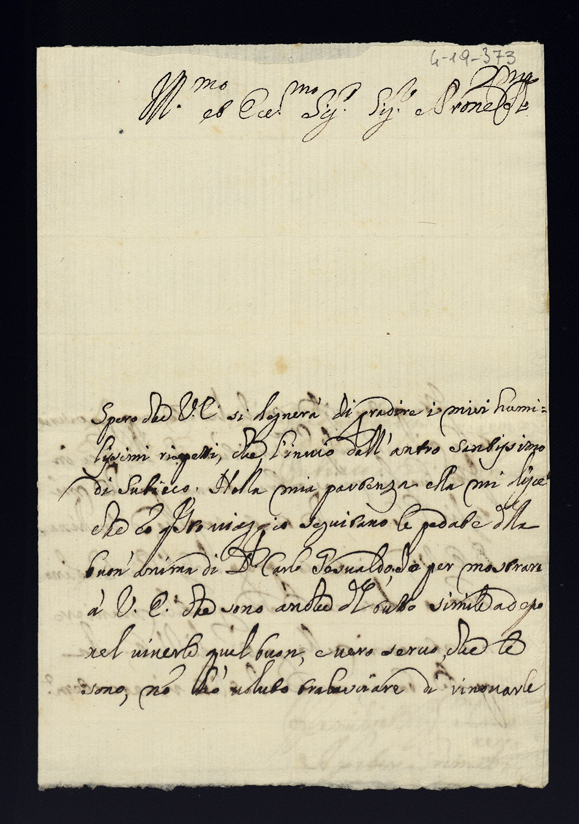 4-19-373
Ill.mo ed Ecc.mo Sig.r Sig.r e Prone
Spero che V.E. si degnerà di gradire i miei humi=
lissimi rispetti, che l'invio dall'antro santissimo
di Subiaco. Nella mia partenza ella mi disse
che io viaggio seguitavo le pedate della
buon'anima di D. Carlo per mostrare
à V. E. che sono anche del tutto simile ad esso
nel viverle quel buon, e vero servo, che le
sono, non hò voluto tralasciare di rinovarle